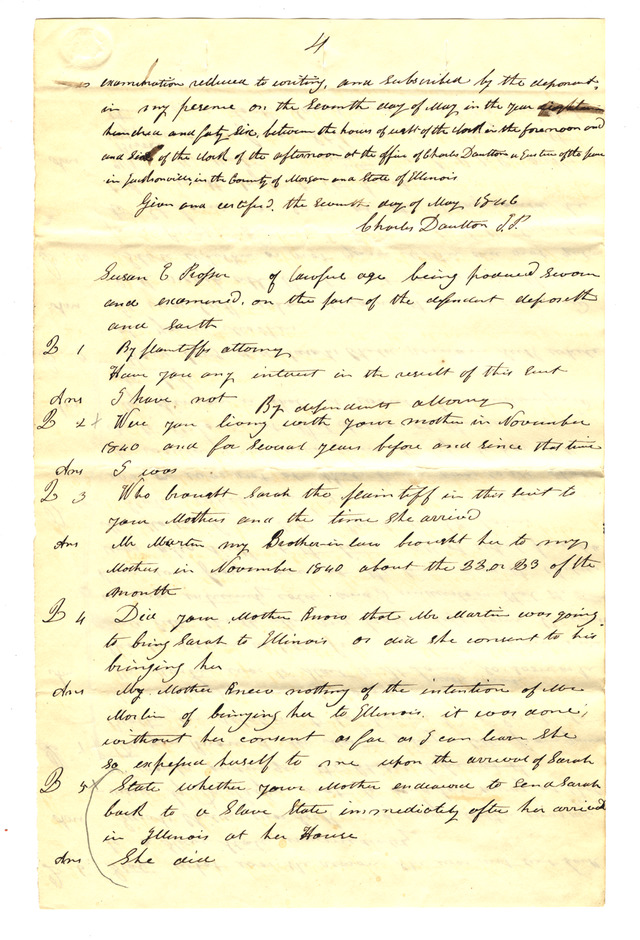 4
examination reduced to writing, and subscribed by the deponent,
in my presence on the seventh day of May in the year eighteen
hundred and forty six, between the hours of eight of the clock in the forenoon and
and six of the clock of the afternoon at the office of Charles Daulton a Justice of the peace
in Jacksonville, in the County of Morgan and State of Illinois
Given and certified, the seventh day of May 1846
Charles Daulton J.P.
Susan E of lawful age being produced sworn
and examined, on the part of the defendant deposeth
and saith
Q 1 By plaintiffs attorney
Have you any interest in the result of this suit
Ans I have not
By defendants attorney
Q 2 + Were you living with your mother in November
1840 and for several years before and since that time
Ans I was
Q 3 Who brought Sarah the plaintiff in this suit to
your Mothers and the time she arrived
Ans Mr Martin my Brother-in-law brought her to my
Mothers in November 1840 about the 22 or 23 of the
month
Q 4 Did your Mother Know that Mr Martin was going
to bring Sarah to Illinois or did she consent to his
bringing her
Ans My Mother Knew nothing of the intention of Mr
Martin of bringing her to Illinois, it was done,
without her consent as far as I can learn she
so expressed herself to me upon the arrival of Sarah
Q 5 x State whether your Mother endeavored to send Sarah
back to a Slave State immediately after her arrived
in Illinois at her House
Ans She did